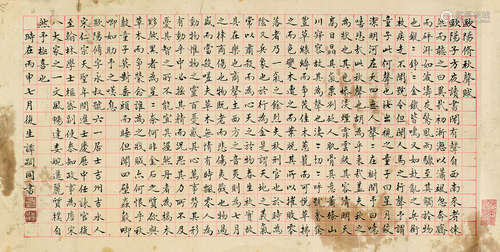 歐陽修秋聲賦
歐陽子方夜讀書聞有聲自西南來者悚
然而聽之曰異哉初淅瀝以瀟颯忽奔騰
而砰湃如波濤夜驚風雨驟至其觸於物
也鏦鏦錚錚金鐵皆鳴又如赴敵之兵銜
枚疾走不聞號令但聞人馬之行聲予謂
童子此何聲也汝出視之童子曰星月皎
潔明河在天四無人聲聲在樹間予曰噫
嘻悲哉此秋聲也胡為乎來哉蓋夫秋之
為狀也其色慘淡煙霏雲斂其容清明天
高日晶其氣慄冽砭人肌骨其意蕭條山
川寂寥故其為聲也淒淒切切呼號憤發
豐草綠縟而爭茂佳木蔥籠而可悅草拂
之而色變木遭之而葉脫其所以摧敗零
落者乃一氣之餘烈夫秋刑官也於時為
陰又兵象也於行為金是謂天地之義氣
常以肅殺而為心天之於物春生秋實故
其在樂也商聲主西方之音夷則為七月
之律商傷也物既老而悲傷夷戮也物過
盛而當殺嗟夫草木無情有時飄零人為
動物惟物之靈百憂感其心萬物勞其形
有動乎中必搖其精而況思其力所不及
憂其智之所不能宜其渥然丹者為槁木
黟然黑者為星星奈何非金石之質欲與
草木而爭榮念誰為之戕賊亦何恨乎秋
聲童子莫對垂頭而睡但聞四壁蟲聲唧
唧如助予之嘆息
歐陽修字永叔號六一居士吉州吉水人
宋仁宗天聖年間進士慶歷中任諫官後
至翰林學士樞密副使參知政事為唐宋
八大家之一文風暢達委婉質樸自
然予極喜也
時在丙申七月復生譚嗣同書